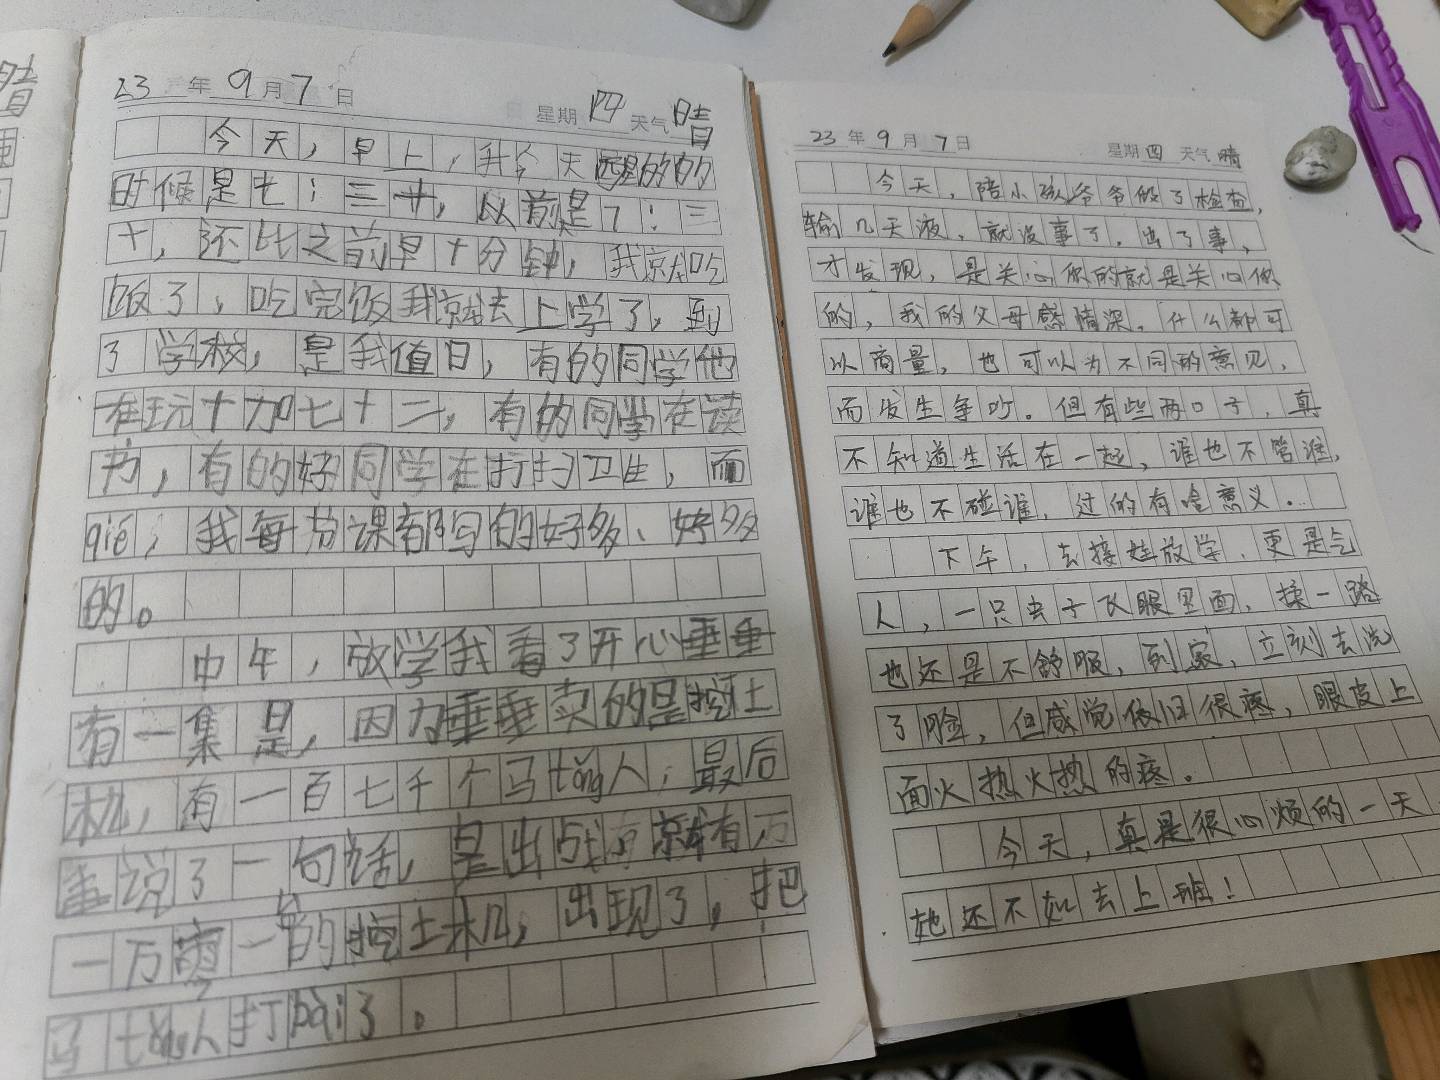 晴
23年9月7日 星期四 天气晴
今天，早上，我今天醒的的
时候是七：三十，以前是7：三
十，还比之前早十分钟，我就吃
饭了，吃完饭我就去上学了，到
了学校，是我值日，有的同学他
在玩十加七十二，有的同学在读
书，有的好同学在打扫卫生，而
qiě，我每节课都写的好多、好多
的。
中午，放学我看了开心锤锤
有一集是，因为锤锤卖的是挖土
机，有一百七千个马tǒng人，最后
说了一句话，是出战，就有万
一万零一的挖土机，出现了，把
马tǒng人打bài了。
23年9月7日 星期四 天气晴
今天，陪小孩爷爷做了检查，
输几天液，就没事了，出了事，
才发现，是关心你的就是关心你
的，我的父母感情深，什么都可
以商量，也可以为不同的意见，
而发生争吵。但有些两口子，真
不知道生活在一起，谁也不管谁，
谁也不碰谁，过的有啥意义。
下午，去接娃放学，更是气
人，一只虫子飞眼里面，揉一路
也还是不舒服，到家，立刻去洗
了脸，但感觉依旧很疼，眼皮上
面火热火热的疼。
今天，真是很心烦的一天
她还不如去上班！